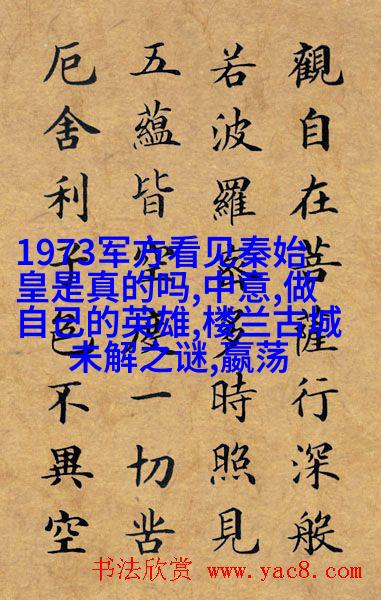 觀自在菩薩行深般
若波羅蜜多時照見
五蘊皆空度一切苦
厄舍利子色不異空
1973军方看见秦始
皇是真的吗,中意,做
自己的英雄,楼兰古城
未解之谜,嬴荡
书法欣赏 www.yac8.com